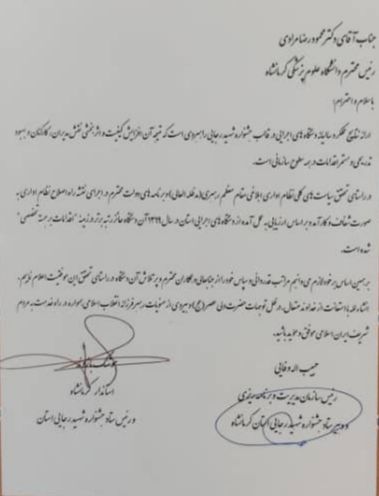 جناب آقای دکتر محمودرضا مرادی
رئیس محترم دانشگاه علوم پزشکی کرمانشاه
با سلام و احترام؛
ارائه نتایج عملکرد سالیانه دستگاه های اجرایی در قالب جشنواره شهید رجایی راهبردی است که نتیجه آن افزایش کیفیت و اثربخشی نقش مدیران، کارکنان و بهبود
تدریجی و مستمر اقدامات در همه سطوح سازمانی است.
در راستای تحقق سیاست های کلی نظام اداری ابلاغی مقام معظم رهبری (مدظله العالی) و برنامه های دولت محترم در اجرای نقشه راه اصلاح نظام اداری به
صورت شفاف و کارآمد و بر اساس ارزیابی به عمل آمده از دستگاه های اجرایی استان در سال ۱۳۹۹ آن دستگاه حائز رتبه برتر در زمینه "اقدامات برجسته تخصصی"
شده است.
بر همین اساس بر خود لازم می دانیم مراتب قدردانی و سپاس خود را از جنابعالی و همکاران محترم و پرتلاش آن دستگاه در راستای تحقق این موفقیت اعلام نماییم.
انشاءالله با استعانت از خداوند متعال، در ظل توجهات حضرت ولی عصر (عج) و بهره مندی از منویات رهبر فرزانه انقلاب اسلامی همواره در راه خدمت به مردم
شریف ایران اسلامی موفق و موید باشید.
حبیب اله وفایی
رئیس سازمان مدیریت و برنامه ریزی
و دبیر ستاد جشنواره شهید رجایی استان کرمانشاه
هوشنگ بازوند
استاندار کرمانشاه
و رئیس ستاد جشنواره شهید رجایی استان